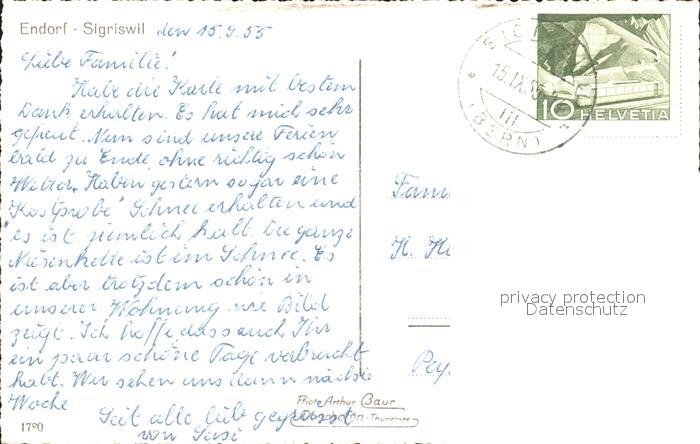 Endorf - Sigriswil den 15.9.55
Liebe Familie!
Habe die Karte mit bestem
Dank erhalten. Es hat mich sehr
gefreut. Nun sind unsere Ferien
bald zu Ende, ohne richtig schön
Wetter. Haben gestern sogar eine
"Kostprobe" Schnee erhalten und
es ist ziemlich kalt. Die ganze
Niesenkette ist im Schnee. Es
ist aber trotzdem schön in
unserer Wohnung wie Bild
zeigt. Ich hoffe, dass auch Ihr
ein paar schöne Tage verbracht
habt. Wir sehen uns dann nächste
Woche
Seit alle lieb gegrüsst
von Susi
1790
Photo Arthur Baur
Thurnen
15.IX.55
III
(BERN)
10 HELVETIA
Fami
H. H
Pey
privacy protection
Datenschutz